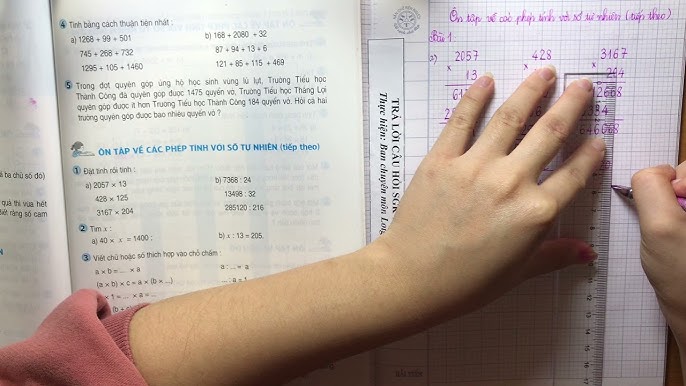 4 Tính bằng cách thuận tiện nhất :
a) 1268 + 99 + 501
745 + 268 + 732
1295 + 105 + 1460
b) 168 + 2080 + 32
87 + 94 + 13 + 6
121 + 85 + 115 + 469
5 Trong đợt quyên góp ủng hộ học sinh vùng lũ lụt, Trường Tiểu học
Thành Công đã quyên góp được 1475 quyển vở. Trường Tiểu học Thắng Lợi
quyên góp được ít hơn Trường Tiểu học Thành Công 184 quyển vở. Hỏi cả hai
trường quyên góp được bao nhiêu quyển vở ?
ÔN TẬP VỀ CÁC PHÉP TÍNH VỚI SỐ TỰ NHIÊN (tiếp theo)
1 Đặt tính rồi tính :
a) 2057 × 13
428 × 125
3167 × 204
b) 7368 : 24
13498 : 32
285120 : 216
2 Tìm x :
a) 40 × x = 1400 ;
b) x : 13 = 205.
3 Viết chữ hoặc số thích hợp vào chỗ chấm :
a × b = ... × a
(a × b) × c = a × (b × ...)
× 1 = ... × a = ...
a : ... = a
... : a = 1
ả ba chữ số đó)
quả thì vừa hết
TRẢ LỜI CÂU HỎI SGK
Thực hiện: Ban chuyên môn
Ôn tập về các phép tính với số tự nhiên (tiếp theo)
Bài 1
a)
2057
×
13
428
×
3167
×
204
12668
646068